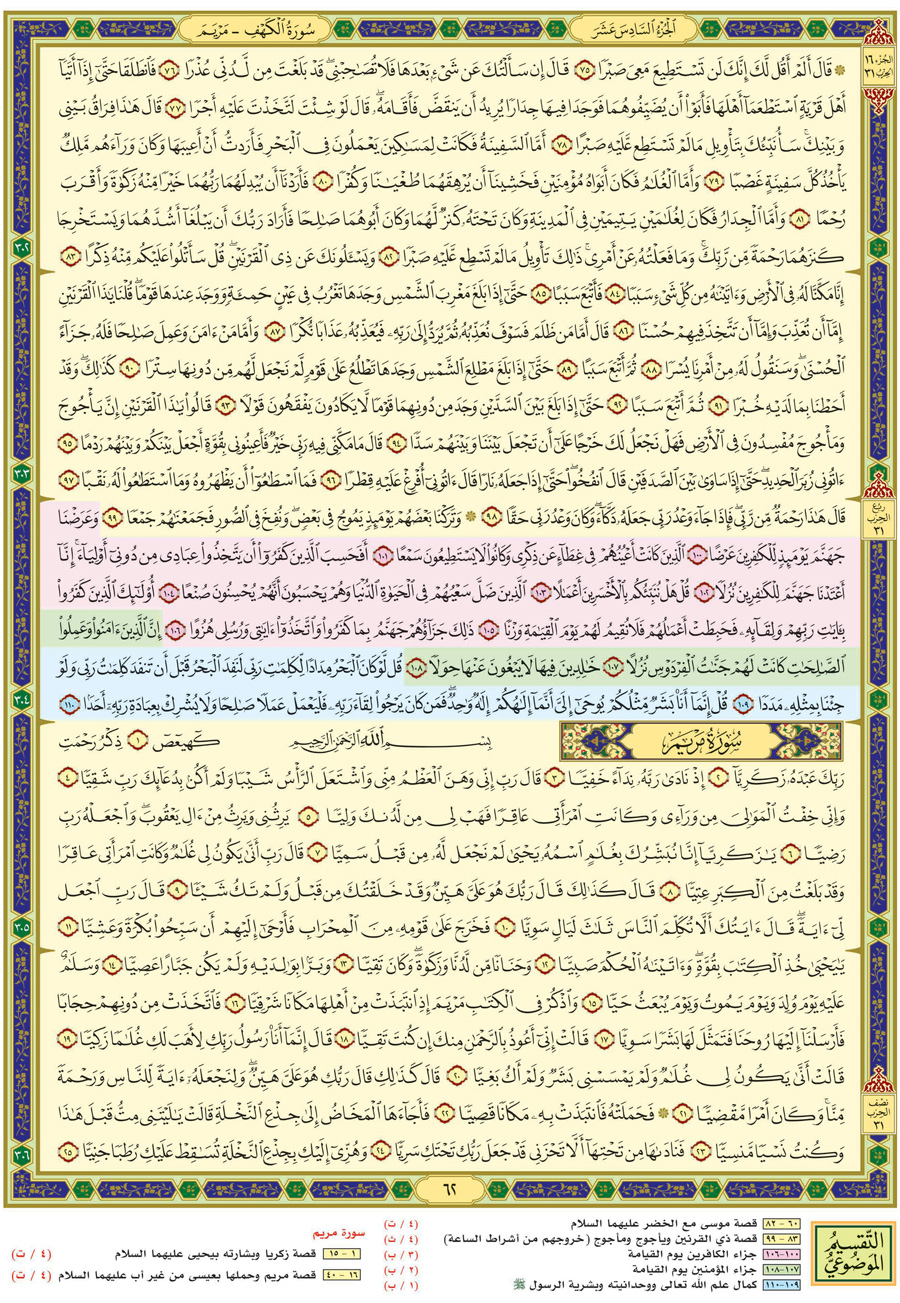 الجُزْءُ السَّادِسَ عَشَرَ
سُورَةُ الكَهْفِ - مَرْيَم
الجزء ١٦
الحزب ٣١
۞ قَالَ أَلَمْ أَقُل لَّكَ إِنَّكَ لَن تَسْتَطِيعَ مَعِىَ صَبْرًا ٧٥ قَالَ إِن سَأَلْتُكَ عَن شَىْءٍۭ بَعْدَهَا فَلَا تُصَٰحِبْنِى ۖ قَدْ بَلَغْتَ مِن لَّدُنِّى عُذْرًا ٧٦ فَٱنطَلَقَا حَتَّىٰٓ إِذَآ أَتَيَآ
أَهْلَ قَرْيَةٍ ٱسْتَطْعَمَآ أَهْلَهَا فَأَبَوْا۟ أَن يُضَيِّفُوهُمَا فَوَجَدَا فِيهَا جِدَارًا يُرِيدُ أَن يَنقَضَّ فَأَقَامَهُۥ ۖ قَالَ لَوْ شِئْتَ لَتَّخَذْتَ عَلَيْهِ أَجْرًا ٧٧ قَالَ هَٰذَا فِرَاقُ بَيْنِى
وَبَيْنِكَ ۚ سَأُنَبِّئُكَ بِتَأْوِيلِ مَا لَمْ تَسْتَطِع عَّلَيْهِ صَبْرًا ٧٨ أَمَّا ٱلسَّفِينَةُ فَكَانَتْ لِمَسَٰكِينَ يَعْمَلُونَ فِى ٱلْبَحْرِ فَأَرَدتُّ أَنْ أَعِيبَهَا وَكَانَ وَرَآءَهُم مَّلِكٌ
يَأْخُذُ كُلَّ سَفِينَةٍ غَصْبًا ٧٩ وَأَمَّا ٱلْغُلَٰمُ فَكَانَ أَبَوَاهُ مُؤْمِنَيْنِ فَخَشِينَآ أَن يُرْهِقَهُمَا طُغْيَٰنًا وَكُفْرًا ٨٠ فَأَرَدْنَآ أَن يُبْدِلَهُمَا رَبُّهُمَا خَيْرًا مِّنْهُ زَكَوٰةً وَأَقْرَبَ
رُحْمًا ٨١ وَأَمَّا ٱلْجِدَارُ فَكَانَ لِغُلَٰمَيْنِ يَتِيمَيْنِ فِى ٱلْمَدِينَةِ وَكَانَ تَحْتَهُۥ كَنزٌ لَّهُمَا وَكَانَ أَبُوهُمَا صَٰلِحًا فَأَرَادَ رَبُّكَ أَن يَبْلُغَآ أَشُدَّهُمَا وَيَسْتَخْرِجَا
كَنزَهُمَا رَحْمَةً مِّن رَّبِّكَ ۚ وَمَا فَعَلْتُهُۥ عَنْ أَمْرِى ۚ ذَٰلِكَ تَأْوِيلُ مَا لَمْ تَسْطِع عَّلَيْهِ صَبْرًا ٨٢ وَيَسْـَٔلُونَكَ عَن ذِى ٱلْقَرْنَيْنِ ۖ قُلْ سَأَتْلُوا۟ عَلَيْكُم مِّنْهُ ذِكْرًا ٨٣
٣٠٢
إِنَّا مَكَّنَّا لَهُۥ فِى ٱلْأَرْضِ وَءَاتَيْنَٰهُ مِن كُلِّ شَىْءٍ سَبَبًا ٨٤ فَأَتْبَعَ سَبَبًا ٨٥ حَتَّىٰٓ إِذَا بَلَغَ مَغْرِبَ ٱلشَّمْسِ وَجَدَهَا تَغْرُبُ فِى عَيْنٍ حَمِئَةٍ وَوَجَدَ عِندَهَا قَوْمًا ۗ قُلْنَا يَٰذَا ٱلْقَرْنَيْنِ
إِمَّآ أَن تُعَذِّبَ وَإِمَّآ أَن تَتَّخِذَ فِيهِمْ حُسْنًا ٨٦ قَالَ أَمَّا مَن ظَلَمَ فَسَوْفَ نُعَذِّبُهُۥ ثُمَّ يُرَدُّ إِلَىٰ رَبِّهِۦ فَيُعَذِّبُهُۥ عَذَابًا نُّكْرًا ٨٧ وَأَمَّا مَنْ ءَامَنَ وَعَمِلَ صَٰلِحًا فَلَهُۥ جَزَآءً
ٱلْحُسْنَىٰ ۖ وَسَنَقُولُ لَهُۥ مِنْ أَمْرِنَا يُسْرًا ٨٨ ثُمَّ أَتْبَعَ سَبَبًا ٨٩ حَتَّىٰٓ إِذَا بَلَغَ مَطْلِعَ ٱلشَّمْسِ وَجَدَهَا تَطْلُعُ عَلَىٰ قَوْمٍ لَّمْ نَجْعَل لَّهُم مِّن دُونِهَا سِتْرًا ٩٠ كَذَٰلِكَ ۖ وَقَدْ
أَحَطْنَا بِمَا لَدَيْهِ خُبْرًا ٩١ ثُمَّ أَتْبَعَ سَبَبًا ٩٢ حَتَّىٰٓ إِذَا بَلَغَ بَيْنَ ٱلسَّدَّيْنِ وَجَدَ مِن دُونِهِمَا قَوْمًا لَّا يَكَادُونَ يَفْقَهُونَ قَوْلًا ٩٣ قَالُوا۟ يَٰذَا ٱلْقَرْنَيْنِ إِنَّ يَأْجُوجَ
وَمَأْجُوجَ مُفْسِدُونَ فِى ٱلْأَرْضِ فَهَلْ نَجْعَلُ لَكَ خَرْجًا عَلَىٰٓ أَن تَجْعَلَ بَيْنَنَا وَبَيْنَهُمْ سَدًّا ٩٤ قَالَ مَا مَكَّنِّى فِيهِ رَبِّى خَيْرٌ فَأَعِينُونِى بِقُوَّةٍ أَجْعَلْ بَيْنَكُمْ وَبَيْنَهُمْ رَدْمًا ٩٥
٣٠٣
ءَاتُونِى زُبَرَ ٱلْحَدِيدِ ۖ حَتَّىٰٓ إِذَا سَاوَىٰ بَيْنَ ٱلصَّدَفَيْنِ قَالَ ٱنفُخُوا۟ ۖ حَتَّىٰٓ إِذَا جَعَلَهُۥ نَارًا قَالَ ءَاتُونِىٓ أُفْرِغْ عَلَيْهِ قِطْرًا ٩٦ فَمَا ٱسْطَٰعُوٓا۟ أَن يَظْهَرُوهُ وَمَا ٱسْتَطَٰعُوا۟ لَهُۥ نَقْبًا ٩٧
ربع الحزب ٣١
قَالَ هَٰذَا رَحْمَةٌ مِّن رَّبِّى ۖ فَإِذَا جَآءَ وَعْدُ رَبِّى جَعَلَهُۥ دَكَّآءَ ۖ وَكَانَ وَعْدُ رَبِّى حَقًّا ٩٨ ۞ وَتَرَكْنَا بَعْضَهُمْ يَوْمَئِذٍ يَمُوجُ فِى بَعْضٍ ۖ وَنُفِخَ فِى ٱلصُّورِ فَجَمَعْنَٰهُمْ جَمْعًا ٩٩ وَعَرَضْنَا
جَهَنَّمَ يَوْمَئِذٍ لِّلْكَٰفِرِينَ عَرْضًا ١٠٠ ٱلَّذِينَ كَانَتْ أَعْيُنُهُمْ فِى غِطَآءٍ عَن ذِكْرِى وَكَانُوا۟ لَا يَسْتَطِيعُونَ سَمْعًا ١٠١ أَفَحَسِبَ ٱلَّذِينَ كَفَرُوٓا۟ أَن يَتَّخِذُوا۟ عِبَادِى مِن دُونِىٓ أَوْلِيَآءَ ۚ إِنَّآ
أَعْتَدْنَا جَهَنَّمَ لِلْكَٰفِرِينَ نُزُلًا ١٠٢ قُلْ هَلْ نُنَبِّئُكُم بِٱلْأَخْسَرِينَ أَعْمَٰلًا ١٠٣ ٱلَّذِينَ ضَلَّ سَعْيُهُمْ فِى ٱلْحَيَوٰةِ ٱلدُّنْيَا وَهُمْ يَحْسَبُونَ أَنَّهُمْ يُحْسِنُونَ صُنْعًا ١٠٤ أُو۟لَٰٓئِكَ ٱلَّذِينَ كَفَرُوا۟
بِـَٔايَٰتِ رَبِّهِمْ وَلِقَآئِهِۦ فَحَبِطَتْ أَعْمَٰلُهُمْ فَلَا نُقِيمُ لَهُمْ يَوْمَ ٱلْقِيَٰمَةِ وَزْنًا ١٠٥ ذَٰلِكَ جَزَآؤُهُمْ جَهَنَّمُ بِمَا كَفَرُوا۟ وَٱتَّخَذُوٓا۟ ءَايَٰتِى وَرُسُلِى هُزُوًا ١٠٦ إِنَّ ٱلَّذِينَ ءَامَنُوا۟ وَعَمِلُوا۟
ٱلصَّٰلِحَٰتِ كَانَتْ لَهُمْ جَنَّٰتُ ٱلْفِرْدَوْسِ نُزُلًا ١٠٧ خَٰلِدِينَ فِيهَا لَا يَبْغُونَ عَنْهَا حِوَلًا ١٠٨ قُل لَّوْ كَانَ ٱلْبَحْرُ مِدَادًا لِّكَلِمَٰتِ رَبِّى لَنَفِدَ ٱلْبَحْرُ قَبْلَ أَن تَنفَدَ كَلِمَٰتُ رَبِّى وَلَوْ
٣٠٤
جِئْنَا بِمِثْلِهِۦ مَدَدًا ١٠٩ قُلْ إِنَّمَآ أَنَا۠ بَشَرٌ مِّثْلُكُمْ يُوحَىٰٓ إِلَىَّ أَنَّمَآ إِلَٰهُكُمْ إِلَٰهٌ وَٰحِدٌ ۖ فَمَن كَانَ يَرْجُوا۟ لِقَآءَ رَبِّهِۦ فَلْيَعْمَلْ عَمَلًا صَٰلِحًا وَلَا يُشْرِكْ بِعِبَادَةِ رَبِّهِۦٓ أَحَدًۢا ١١٠
سُورَةُ مَرْيَمَ بِسْمِ ٱللَّهِ ٱلرَّحْمَٰنِ ٱلرَّحِيمِ كٓهيعٓصٓ ١ ذِكْرُ رَحْمَتِ
رَبِّكَ عَبْدَهُۥ زَكَرِيَّآ ٢ إِذْ نَادَىٰ رَبَّهُۥ نِدَآءً خَفِيًّا ٣ قَالَ رَبِّ إِنِّى وَهَنَ ٱلْعَظْمُ مِنِّى وَٱشْتَعَلَ ٱلرَّأْسُ شَيْبًا وَلَمْ أَكُنۢ بِدُعَآئِكَ رَبِّ شَقِيًّا ٤
وَإِنِّى خِفْتُ ٱلْمَوَٰلِىَ مِن وَرَآءِى وَكَانَتِ ٱمْرَأَتِى عَاقِرًا فَهَبْ لِى مِن لَّدُنكَ وَلِيًّا ٥ يَرِثُنِى وَيَرِثُ مِنْ ءَالِ يَعْقُوبَ ۖ وَٱجْعَلْهُ رَبِّ
رَضِيًّا ٦ يَٰزَكَرِيَّآ إِنَّا نُبَشِّرُكَ بِغُلَٰمٍ ٱسْمُهُۥ يَحْيَىٰ لَمْ نَجْعَل لَّهُۥ مِن قَبْلُ سَمِيًّا ٧ قَالَ رَبِّ أَنَّىٰ يَكُونُ لِى غُلَٰمٌ وَكَانَتِ ٱمْرَأَتِى عَاقِرًا
وَقَدْ بَلَغْتُ مِنَ ٱلْكِبَرِ عِتِيًّا ٨ قَالَ كَذَٰلِكَ قَالَ رَبُّكَ هُوَ عَلَىَّ هَيِّنٌ وَقَدْ خَلَقْتُكَ مِن قَبْلُ وَلَمْ تَكُ شَيْـًٔا ٩ قَالَ رَبِّ ٱجْعَل
٣٠٥
لِّىٓ ءَايَةً ۚ قَالَ ءَايَتُكَ أَلَّا تُكَلِّمَ ٱلنَّاسَ ثَلَٰثَ لَيَالٍ سَوِيًّا ١٠ فَخَرَجَ عَلَىٰ قَوْمِهِۦ مِنَ ٱلْمِحْرَابِ فَأَوْحَىٰٓ إِلَيْهِمْ أَن سَبِّحُوا۟ بُكْرَةً وَعَشِيًّا ١١
يَٰيَحْيَىٰ خُذِ ٱلْكِتَٰبَ بِقُوَّةٍ ۖ وَءَاتَيْنَٰهُ ٱلْحُكْمَ صَبِيًّا ١٢ وَحَنَانًا مِّن لَّدُنَّا وَزَكَوٰةً ۖ وَكَانَ تَقِيًّا ١٣ وَبَرًّۢا بِوَٰلِدَيْهِ وَلَمْ يَكُن جَبَّارًا عَصِيًّا ١٤ وَسَلَٰمٌ
عَلَيْهِ يَوْمَ وُلِدَ وَيَوْمَ يَمُوتُ وَيَوْمَ يُبْعَثُ حَيًّا ١٥ وَٱذْكُرْ فِى ٱلْكِتَٰبِ مَرْيَمَ إِذِ ٱنتَبَذَتْ مِنْ أَهْلِهَا مَكَانًا شَرْقِيًّا ١٦ فَٱتَّخَذَتْ مِن دُونِهِمْ حِجَابًا
فَأَرْسَلْنَآ إِلَيْهَا رُوحَنَا فَتَمَثَّلَ لَهَا بَشَرًا سَوِيًّا ١٧ قَالَتْ إِنِّىٓ أَعُوذُ بِٱلرَّحْمَٰنِ مِنكَ إِن كُنتَ تَقِيًّا ١٨ قَالَ إِنَّمَآ أَنَا۠ رَسُولُ رَبِّكِ لِأَهَبَ لَكِ غُلَٰمًا زَكِيًّا ١٩
قَالَتْ أَنَّىٰ يَكُونُ لِى غُلَٰمٌ وَلَمْ يَمْسَسْنِى بَشَرٌ وَلَمْ أَكُ بَغِيًّا ٢٠ قَالَ كَذَٰلِكِ قَالَ رَبُّكِ هُوَ عَلَىَّ هَيِّنٌ ۖ وَلِنَجْعَلَهُۥٓ ءَايَةً لِّلنَّاسِ وَرَحْمَةً
نصف الحزب ٣١
مِّنَّا ۚ وَكَانَ أَمْرًا مَّقْضِيًّا ٢١ ۞ فَحَمَلَتْهُ فَٱنتَبَذَتْ بِهِۦ مَكَانًا قَصِيًّا ٢٢ فَأَجَآءَهَا ٱلْمَخَاضُ إِلَىٰ جِذْعِ ٱلنَّخْلَةِ قَالَتْ يَٰلَيْتَنِى مِتُّ قَبْلَ هَٰذَا
٣٠٦
وَكُنتُ نَسْيًا مَّنسِيًّا ٢٣ فَنَادَىٰهَا مِن تَحْتِهَآ أَلَّا تَحْزَنِى قَدْ جَعَلَ رَبُّكِ تَحْتَكِ سَرِيًّا ٢٤ وَهُزِّىٓ إِلَيْكِ بِجِذْعِ ٱلنَّخْلَةِ تُسَٰقِطْ عَلَيْكِ رُطَبًا جَنِيًّا ٢٥
٦٢
التَّقسِيمُ المَوضُوعِيُّ
٦٠ - ٨٢ قصة موسى مع الخضر عليهما السلام (٤ / ت)
٨٣ - ٩٩ قصة ذي القرنين ويأجوج ومأجوج (خروجهم من أشراط الساعة) (٤ / ث)
١٠٠-١٠٦ جزاء الكافرين يوم القيامة (٣ / ب)
١٠٧-١٠٨ جزاء المؤمنين يوم القيامة (٢ / ب)
١٠٩-١١٠ كمال علم الله تعالى ووحدانيته وبشرية الرسول ﷺ (١ / ب)
سورة مريم
١ - ١٥ قصة زكريا وبشارته بيحيى عليهما السلام (٤ / ت)
١٦ - ٤٠ قصة مريم وحملها بعيسى من غير أب عليهما السلام (٤ / ت)